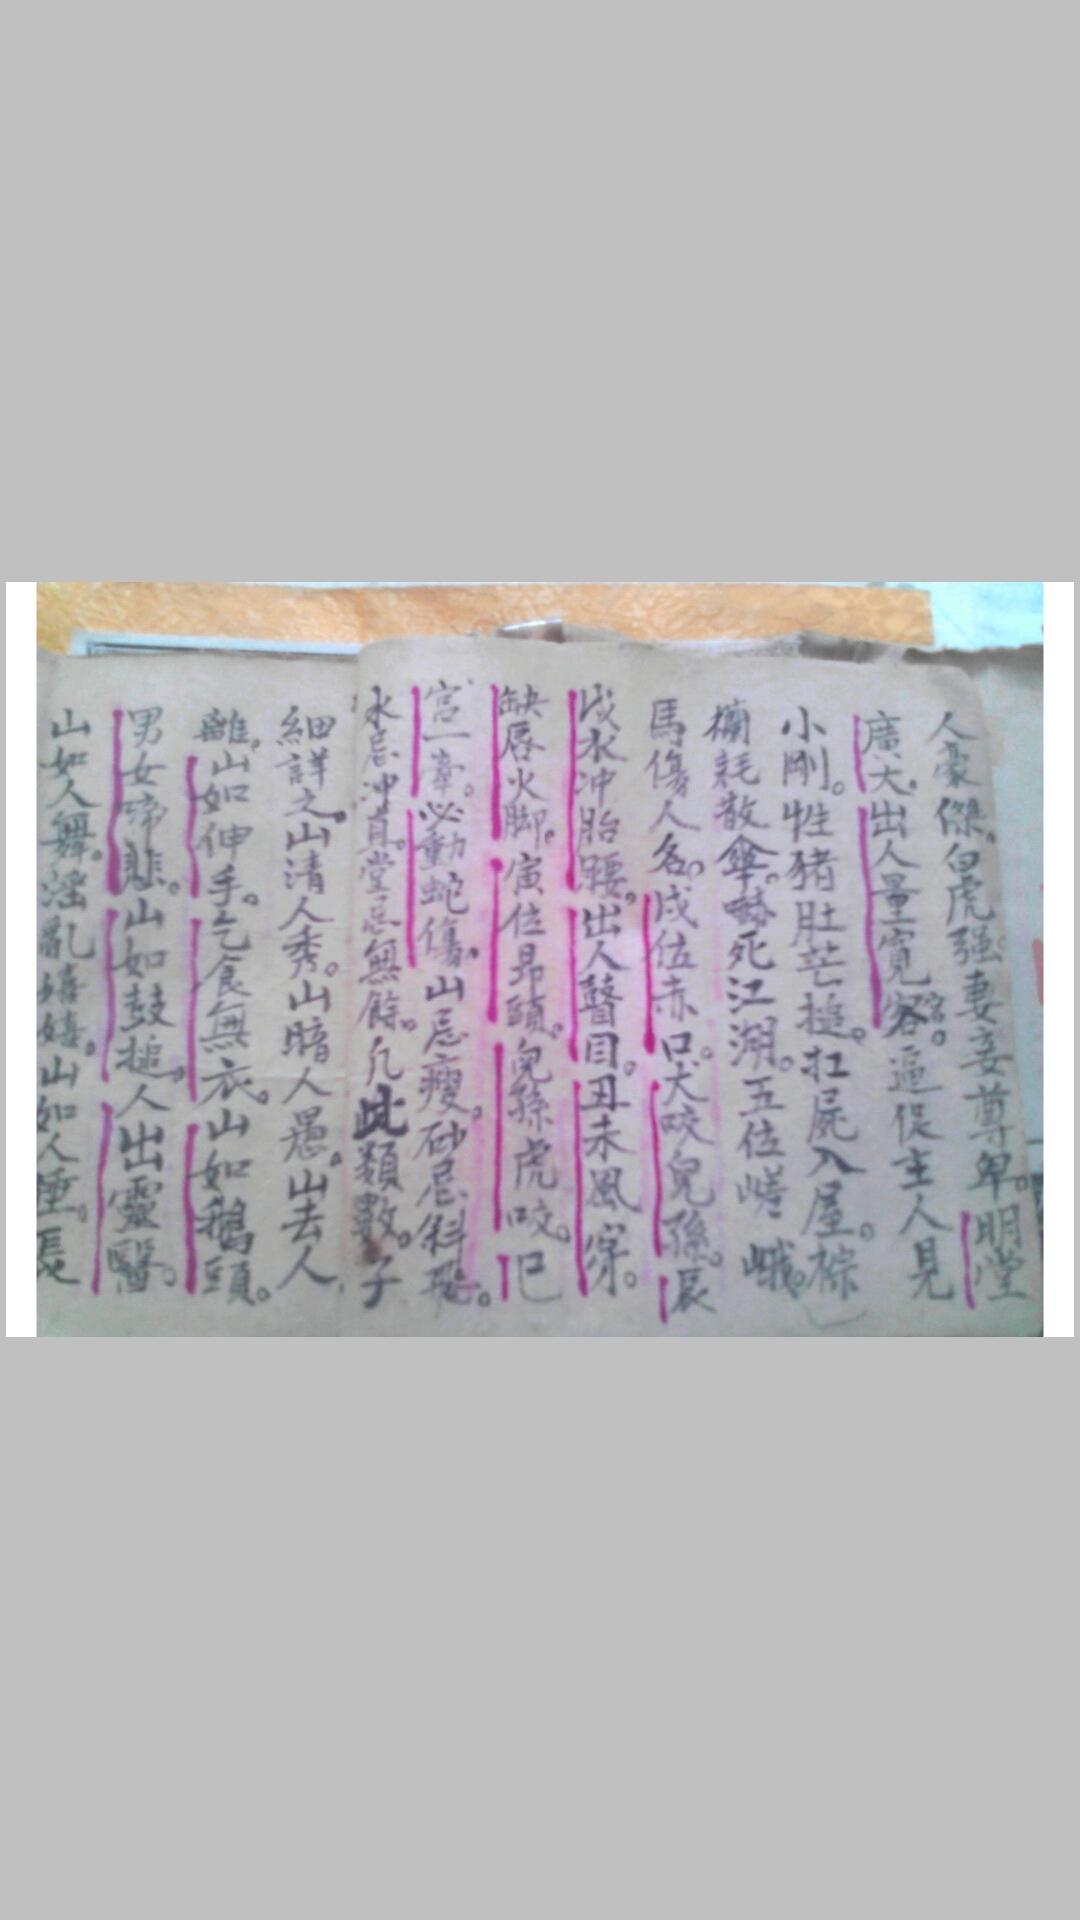 人豪傑。白虎强。妻妾尊卑。明堂
廣大。出人量寬容宏。逼促主人見
小剛。性猪肚芒槌。扛屍入屋。㯶
欄耗散傘。死江湖。五位嵯峨。
馬傷人名。戌位赤口。犬咬兒孫。辰
戌水冲胎腰。出人瞽目。丑未風穿。
缺唇火脚。寅位昂頭。兒孫虎咬。巳
宮一峯。必動蛇傷。山忌瘦。砂忌斜飛。
水忌冲直。堂忌無餘。凡此類數。子
細詳之。山清人秀。山暗人愚。山去人
離。山如伸手。乞食無衣。山如鵝頭。
男女啼悲。山如鼓槌。人出靈醫。
山如人舞。淫亂嬉嬉。山如人睡。長